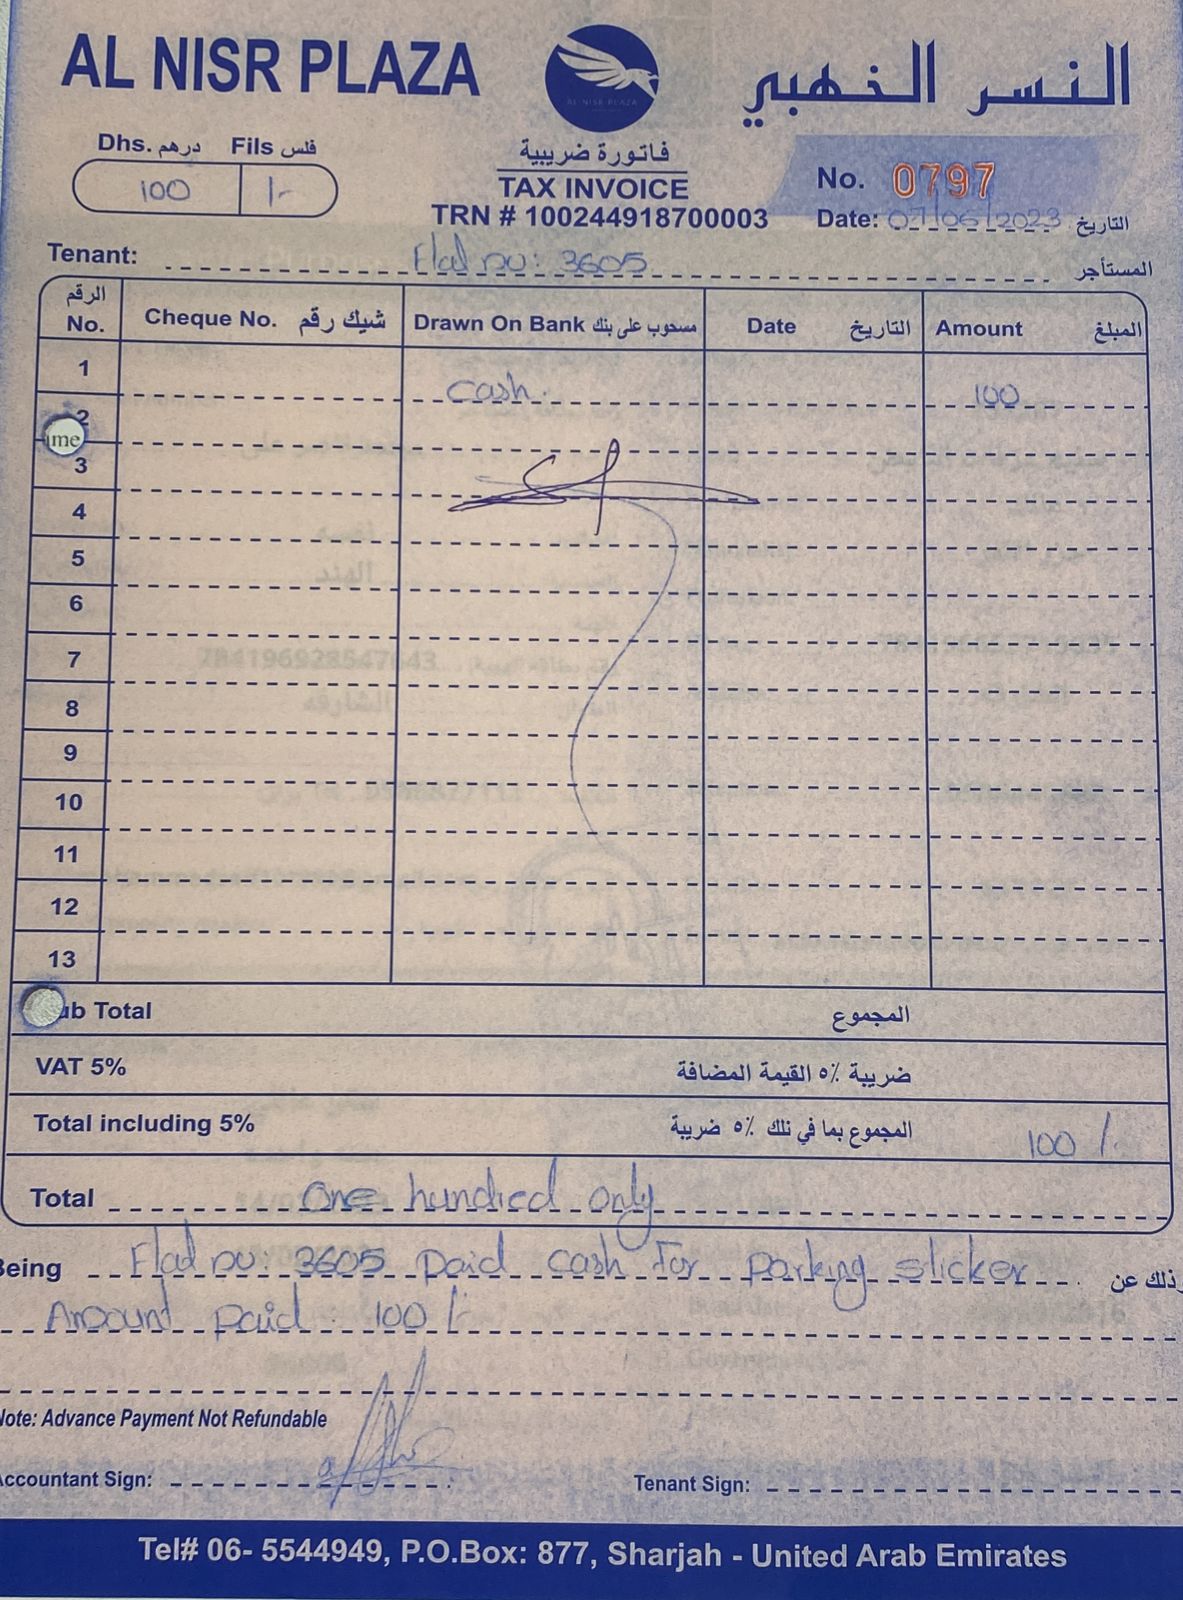 AL NISR PLAZA
النسر الذهبي
AL NISR PLAZA
Dhs. درهم Fils فلس
100 /-
فاتورة ضريبية
TAX INVOICE
TRN # 100244918700003
No. 0797
Date: 07/06/2023 التاريخ
Tenant: Flat no: 3605 المستأجر
الرقم No. Cheque No. شيك رقم Drawn On Bank مسحوب على بنك Date التاريخ Amount المبلغ
1 Cash. 100
2
ime
3
4
5
6
7
8
9
10
11
12
13
ub Total المجموع
VAT 5% ضريبة ٥٪ القيمة المضافة
Total including 5% المجموع بما في ذلك ٥٪ ضريبة 100 /.
Total One hundred only
Being Flat no: 3605 paid cash for parking sticker وذلك عن
Amount paid 100 /-
Note: Advance Payment Not Refundable
Accountant Sign: Tenant Sign:
Tel# 06- 5544949, P.O.Box: 877, Sharjah - United Arab Emirates